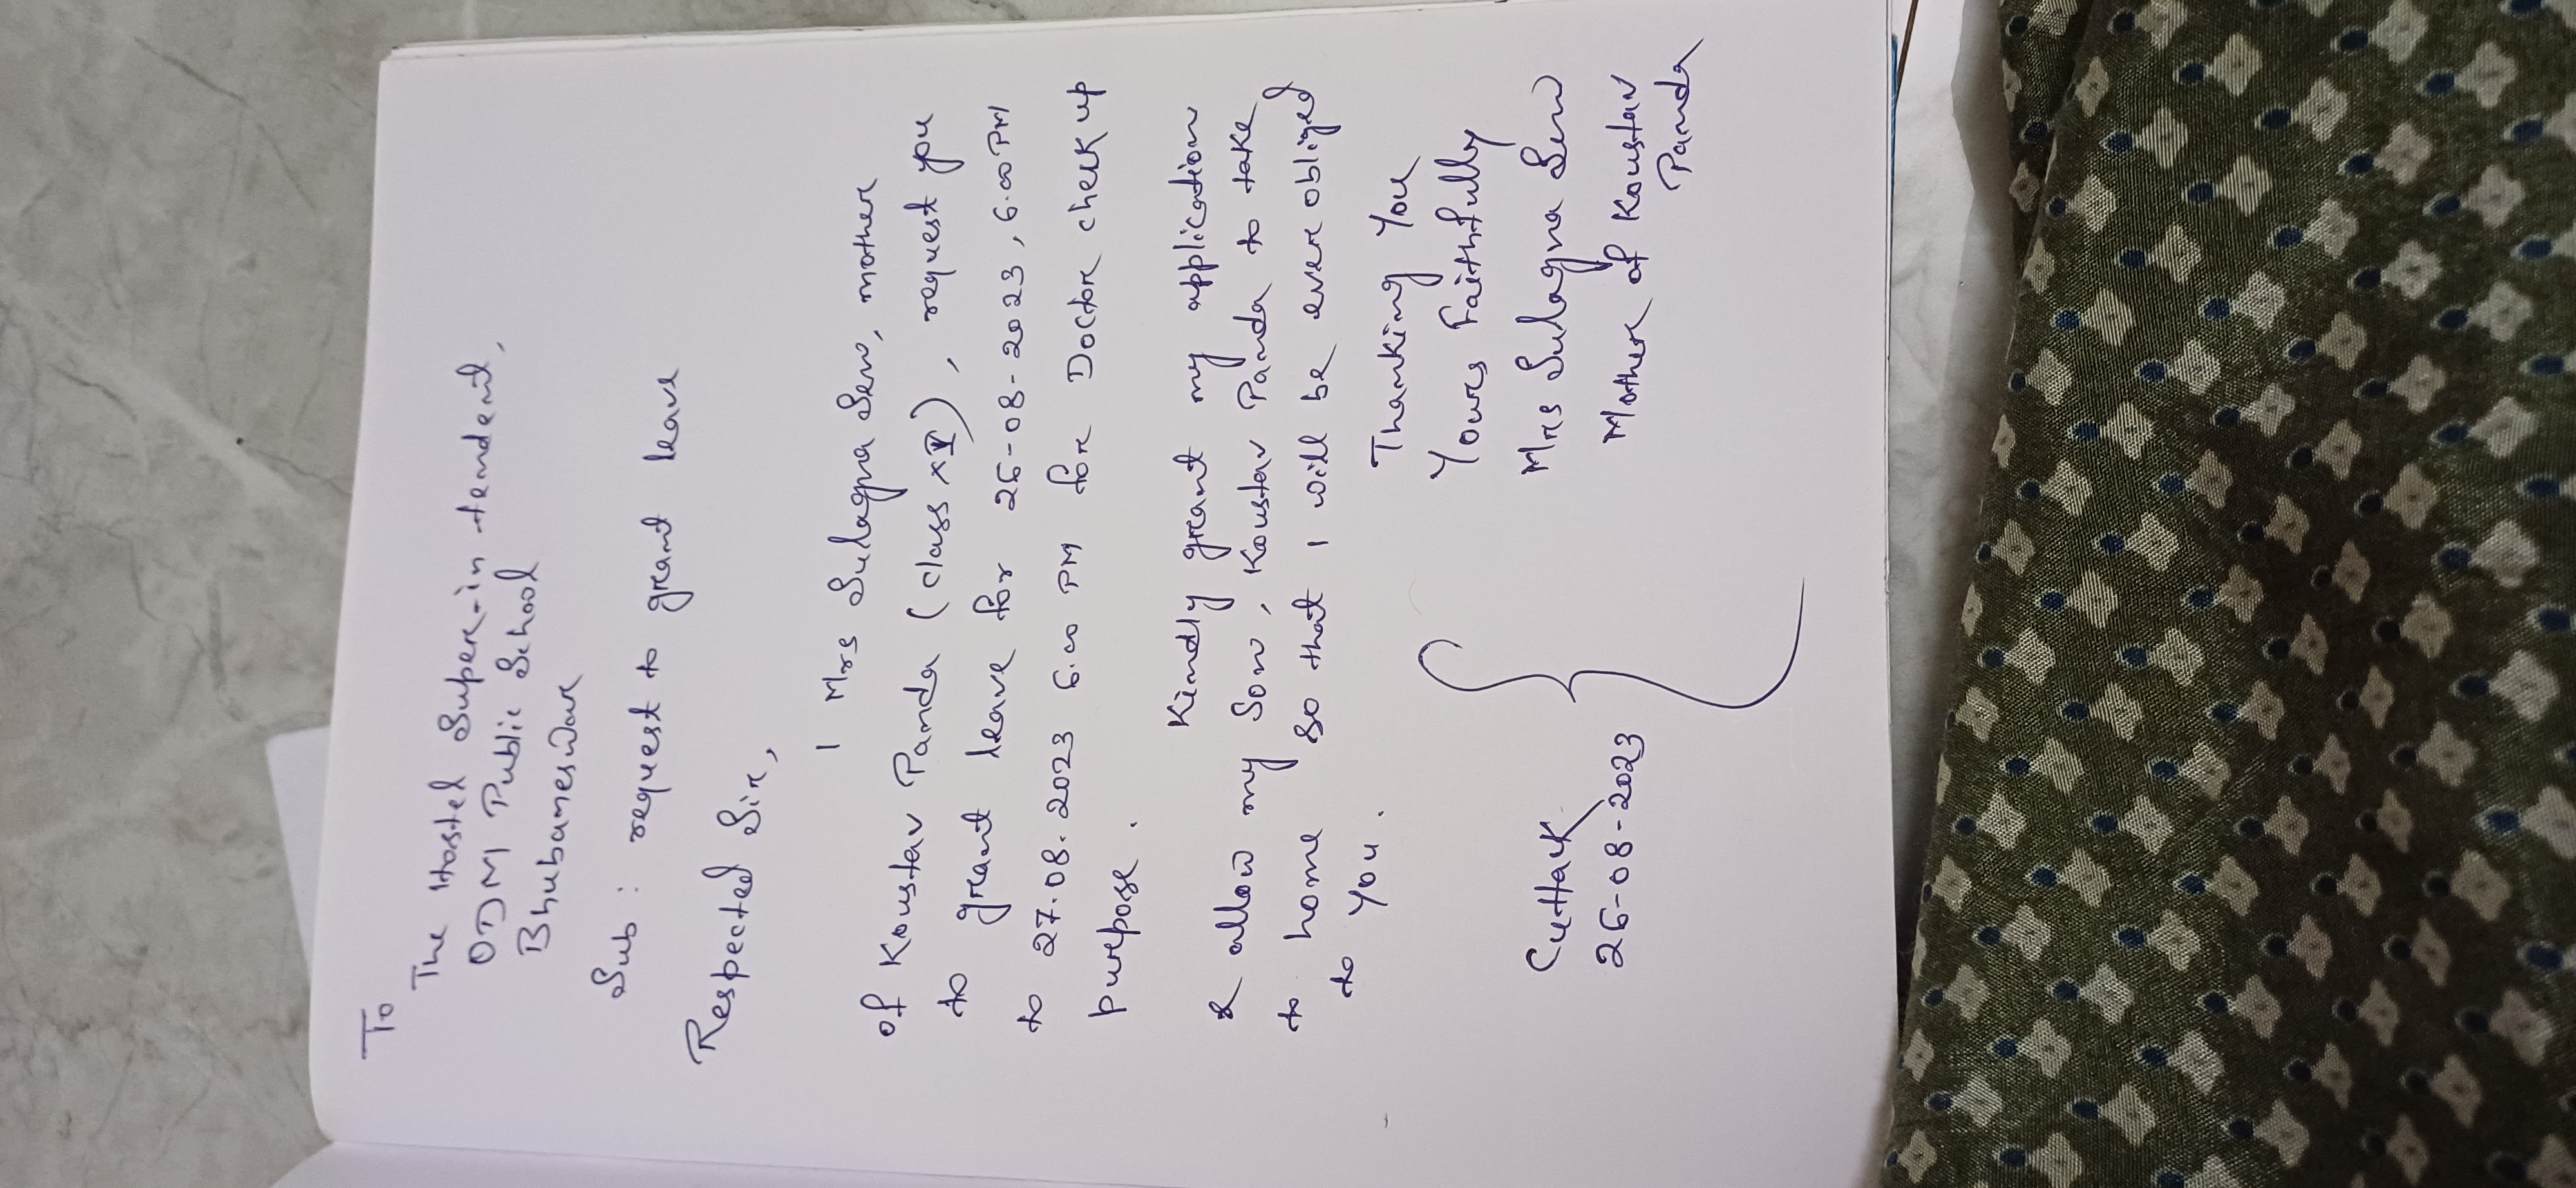 To
The Hostel Super-in-tendent,
ODM Public School
Bhubaneswar
Sub : request to grant leave
Respected Sir,
I Mrs Sulagna Sen, mother
of Koustav Panda (class ), request you
to grant leave for 26-08-2023, 6.00 PM
to 27.08.2023 6.00 PM for Doctor check up
purpose.
Kindly grant my application
& allow my Son, Koustav Panda to take
to home so that I will be ever obliged
to You.
Thanking You
Yours Faithfully
Mrs Sulagna Sen
Mother of Koustav
Panda
Cuttack
26-08-2023